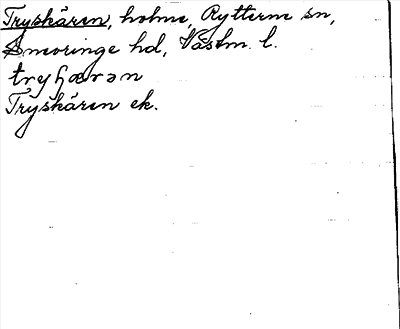 Tryskären, holme, Rytterne sn,
Snevringe hd, Västm. l.
tryʃærən
Tryskären ek.